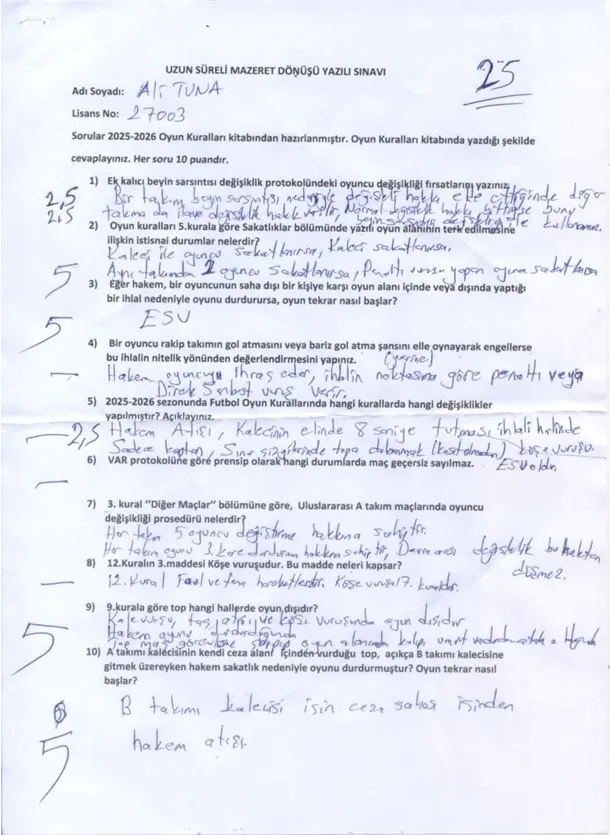 UZUN SÜRELİ MAZERET DÖNÜŞÜ YAZILI SINAVI
25
Adı Soyadı: Ali TUNA
Lisans No: 27003
Sorular 2025-2026 Oyun Kuralları kitabından hazırlanmıştır. Oyun Kuralları kitabında yazdığı şekilde
cevaplayınız. Her soru 10 puandır.
1) Ek kalıcı beyin sarsıntısı değişiklik protokolündeki oyuncu değişikliği fırsatlarını yazınız.
2,5 Bir takım beyin sarsıntısı nedeniyle değişiklik hakkı elde ettiğinde diğer
2,5 takıma da ilave değişiklik hakkı verilir. Normal değişiklik hakkı bittiyse bunu
beyin sarsıntısı değişikliği ile kullanamaz.
2) Oyun kuralları 5.kurala göre Sakatlıklar bölümünde yazılı oyun alanının terk edilmesine
ilişkin istisnai durumlar nelerdir?
Kaleci ile oyuncu sakatlanırsa, Kaleci sakatlanırsa.
5 Aynı takımdan 2 oyuncu sakatlanırsa, Penaltı vuruşu yapan oyuncu sakatlanırsa
3) Eğer hakem, bir oyuncunun saha dışı bir kişiye karşı oyun alanı içinde veya dışında yaptığı
bir ihlal nedeniyle oyunu durdurursa, oyun tekrar nasıl başlar?
5 ESV
4) Bir oyuncu rakip takımın gol atmasını veya bariz gol atma şansını elle oynayarak engellerse
bu ihlalin nitelik yönünden değerlendirmesini yapınız. (yerine)
— Hakem oyuncuyu ihraç eder, ihlalin noktasına göre penaltı veya
Direk Serbest vuruş verir.
5) 2025-2026 sezonunda Futbol Oyun Kurallarında hangi kurallarda hangi değişiklikler
yapılmıştır? Açıklayınız.
2,5 Hakem Atışı, Kalecinin elinde 8 saniye tutması ihlali halinde
Sadece kaptan, Sınır çizgilerinde topa dokunmak (kasıt olmadan) köşe vuruşu.
6) VAR protokolüne göre prensip olarak hangi durumlarda maç geçersiz sayılmaz. ESV olur.
—
7) 3. kural "Diğer Maçlar" bölümüne göre, Uluslararası A takım maçlarında oyuncu
değişikliği prosedürü nelerdir?
Her takım 5 oyuncu değiştirme hakkına sahiptir.
— Her takım oyunu 3 kere durdurma hakkına sahiptir, Devre arası değişiklik bu haktan
düşmez.
8) 12.Kuralın 3.maddesi Köşe vuruşudur. Bu madde neleri kapsar?
— 12. Kural Faul ve fena hareketlerdir. Köşe vuruşu 17. kuraldır.
9) 9.kurala göre top hangi hallerde oyun dışıdır?
Kale vuruşu, taç atışı ve köşe vuruşunda oyun dışıdır
5 Hakem oyunu durdurduğunda
Top maç görevlisine çarpıp oyun alanında kalıp
10) A takımı kalecisinin kendi ceza alanı içinden vurduğu top, açıkça B takımı kalecisine
gitmek üzereyken hakem sakatlık nedeniyle oyunu durdurmuştur? Oyun tekrar nasıl
başlar?
B takımı kalecisi için ceza sahası içinden
5 hakem atışı.